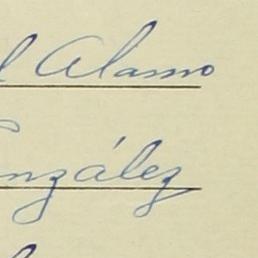 l Alamo
nzález